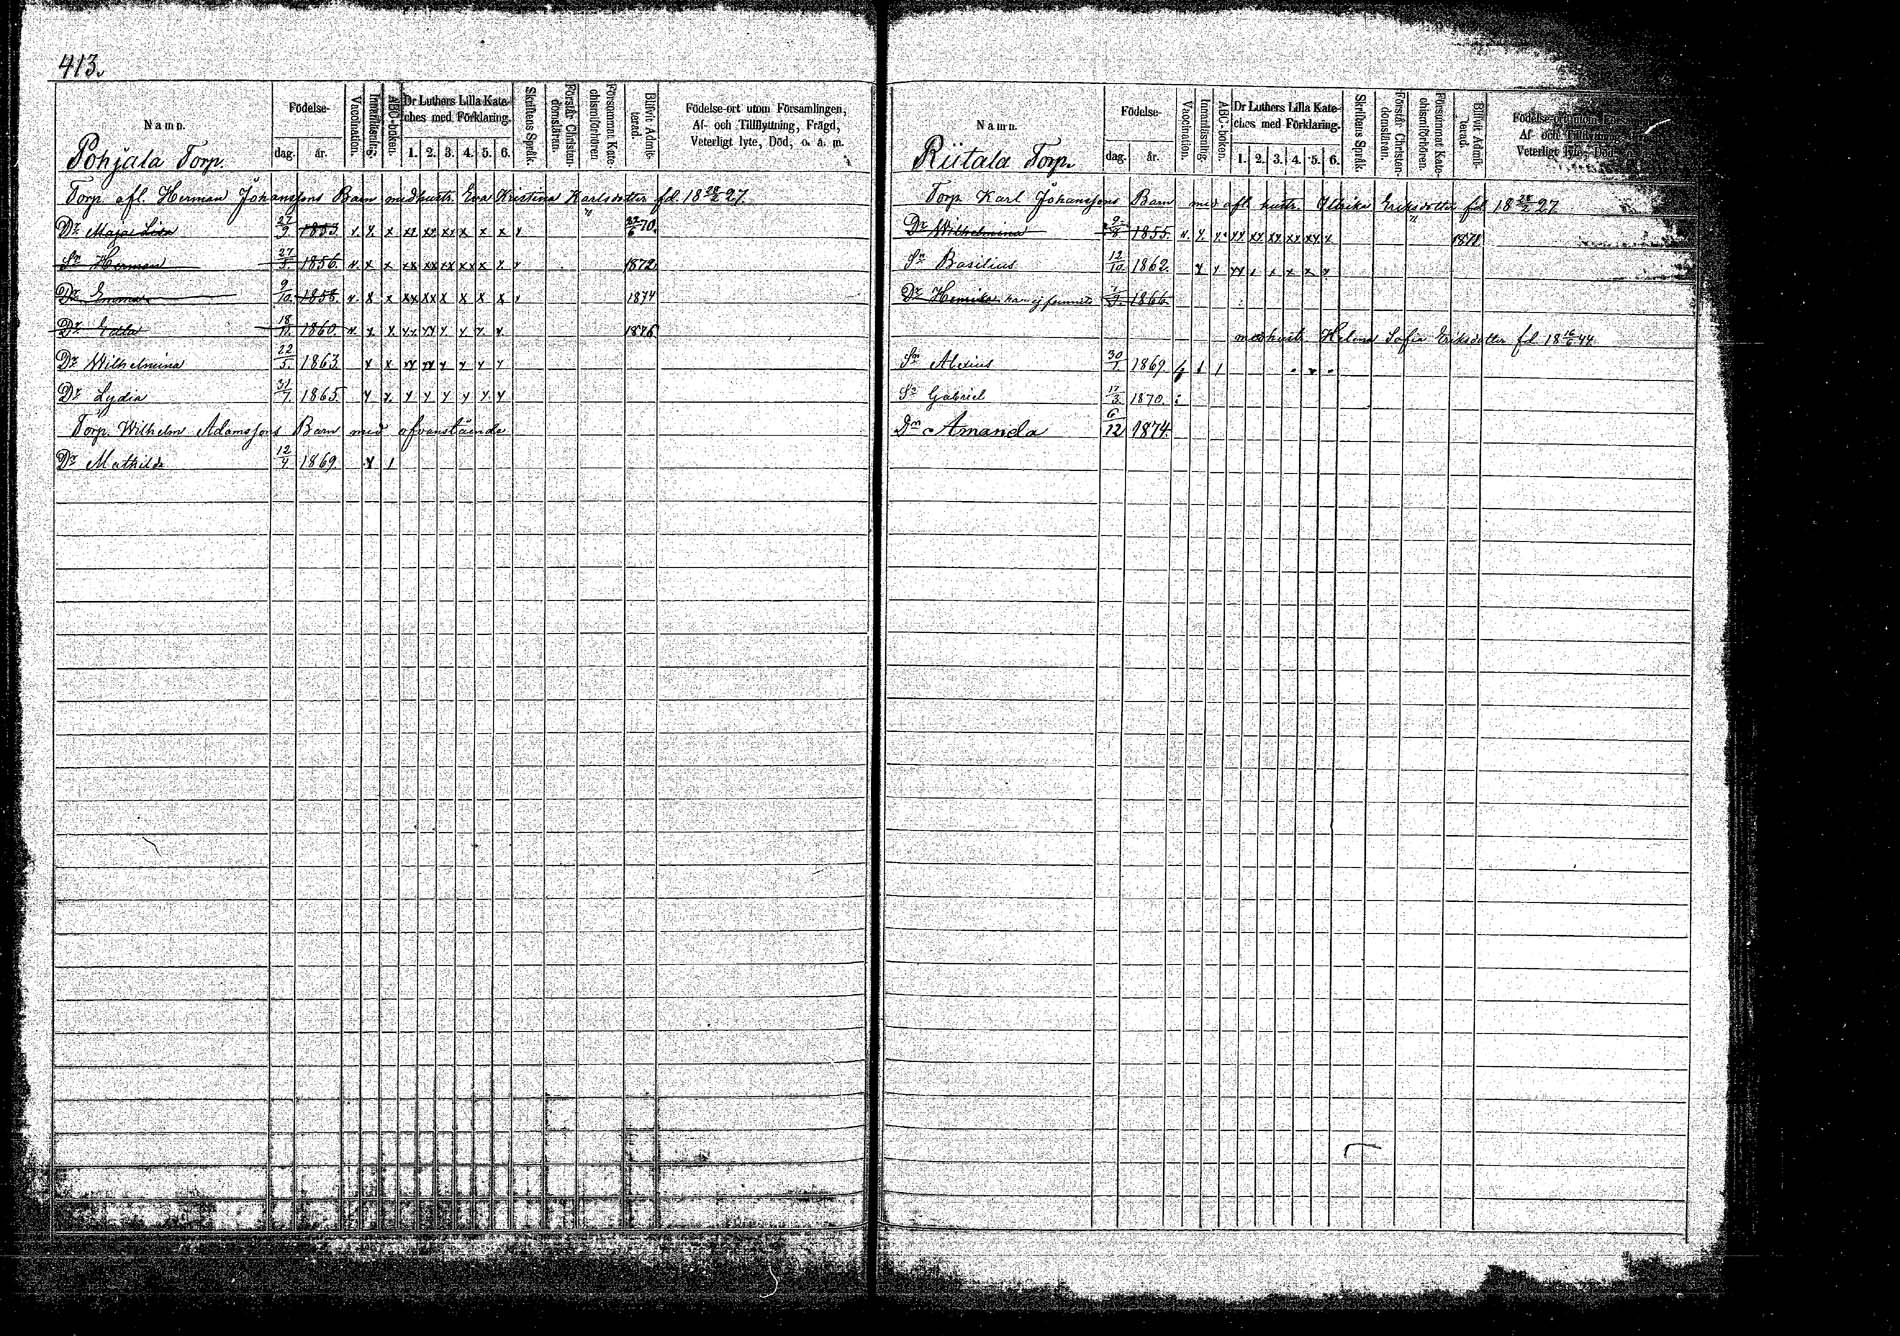 413.
Namn. Födelse- dag. år. Vaccination. Innanläsning. ABC-boken. Dr Luthers Lilla Kateches med Förklaring. 1. 2. 3. 4. 5. 6. Skriftens Språk. Förstår Christendomslären. Försummat Katechismiförhören. Blifvit Admitterad. Födelse-ort utom Församlingen, Af- och Tillflyttning, Frägd, Veterligt lyte, Död, o. a. m.
Pohjala Torp.
Torp. afl. Herman Johanssons Barn med hustr. Eva Kristina Karlsdotter fd. 18 28/2 27.
Dr Maja Lisa 27/9 1853. x x x xx xx xx x x x x 22/6 70.
Sn Herman 27/3 1856. x x x xx xx xx xx x x x 1872.
Dr Emma 9/10 1858. x x x xx xx x x x x x 1874
Dr Edla 18/11 1860. x x x xx xx x x x x 1876
Dr Wilhelmina 22/3 1863. x x xx xx x x x x
Dr Lydia 31/7 1865. x x x x x x x x
Torp. Wilhelm Adamssons Barn med ofvanstående
Dr Mathilda 12/4 1869. x 1
Namn. Födelse- dag. år. Vaccination. Innanläsning. ABC-boken. Dr Luthers Lilla Kateches med Förklaring. 1. 2. 3. 4. 5. 6. Skriftens Språk. Förstår Christendomslären. Försummat Katechismiförhören. Blifvit Admitterad. Födelse-ort utom Af- och Tillflyttning, Veterligt lyte, Död
Riitala Torp.
Torp. Karl Johanssons Barn med afl. hustr. Ulrika Eriksdotter fd. 18 28/2 27
Dr Wilhelmina 9/8 1855. x x x xx xx xx xx xx x 1871.
Sn Basilius 12/10 1862. x x xx x x x x x
Dr Henrika har ej funnits 1866.
med hustr. Helena Sofia Eriksdotter fd. 18 16/6 44.
Sn Alexius 30/1 1869.
Sn Gabriel 17/3 1870.
Dn Amanda 6/12 1874.